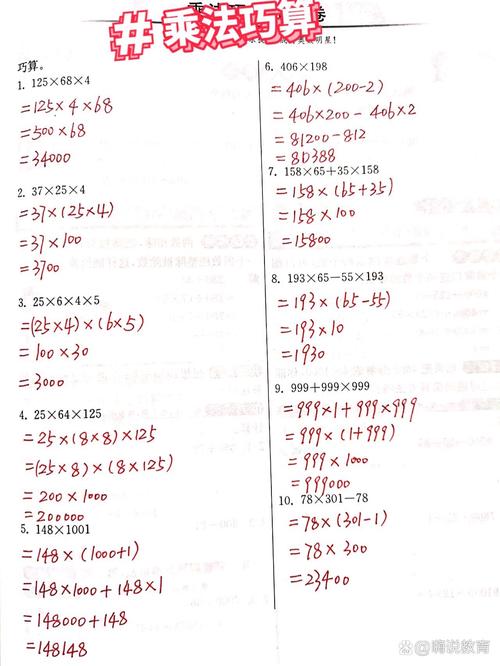 #乘法巧算
卷
巧算。
1. 125×68×4
=125×4×68
=500×68
=34000
2. 37×25×4
=37×(25×4)
=37×100
=3700
3. 25×6×4×5
=(25×4)×(6×5)
=100×30
=3000
4. 25×64×125
=25×(8×8)×125
=(25×8)×(8×125)
=200×1000
=200000
5. 148×1001
=148×(1000+1)
=148×1000+148×1
=148000+148
=148148
6. 406×198
=406×(200-2)
=406×200-406×2
=81200-812
=80388
7. 158×65+35×158
=158×(65+35)
=158×100
=15800
8. 193×65-55×193
=193×(65-55)
=193×10
=1930
9. 999+999×999
=999×1+999×999
=999×(1+999)
=999×1000
=999000
10. 78×301-78
=78×(301-1)
=78×300
=23400
嗨说教育